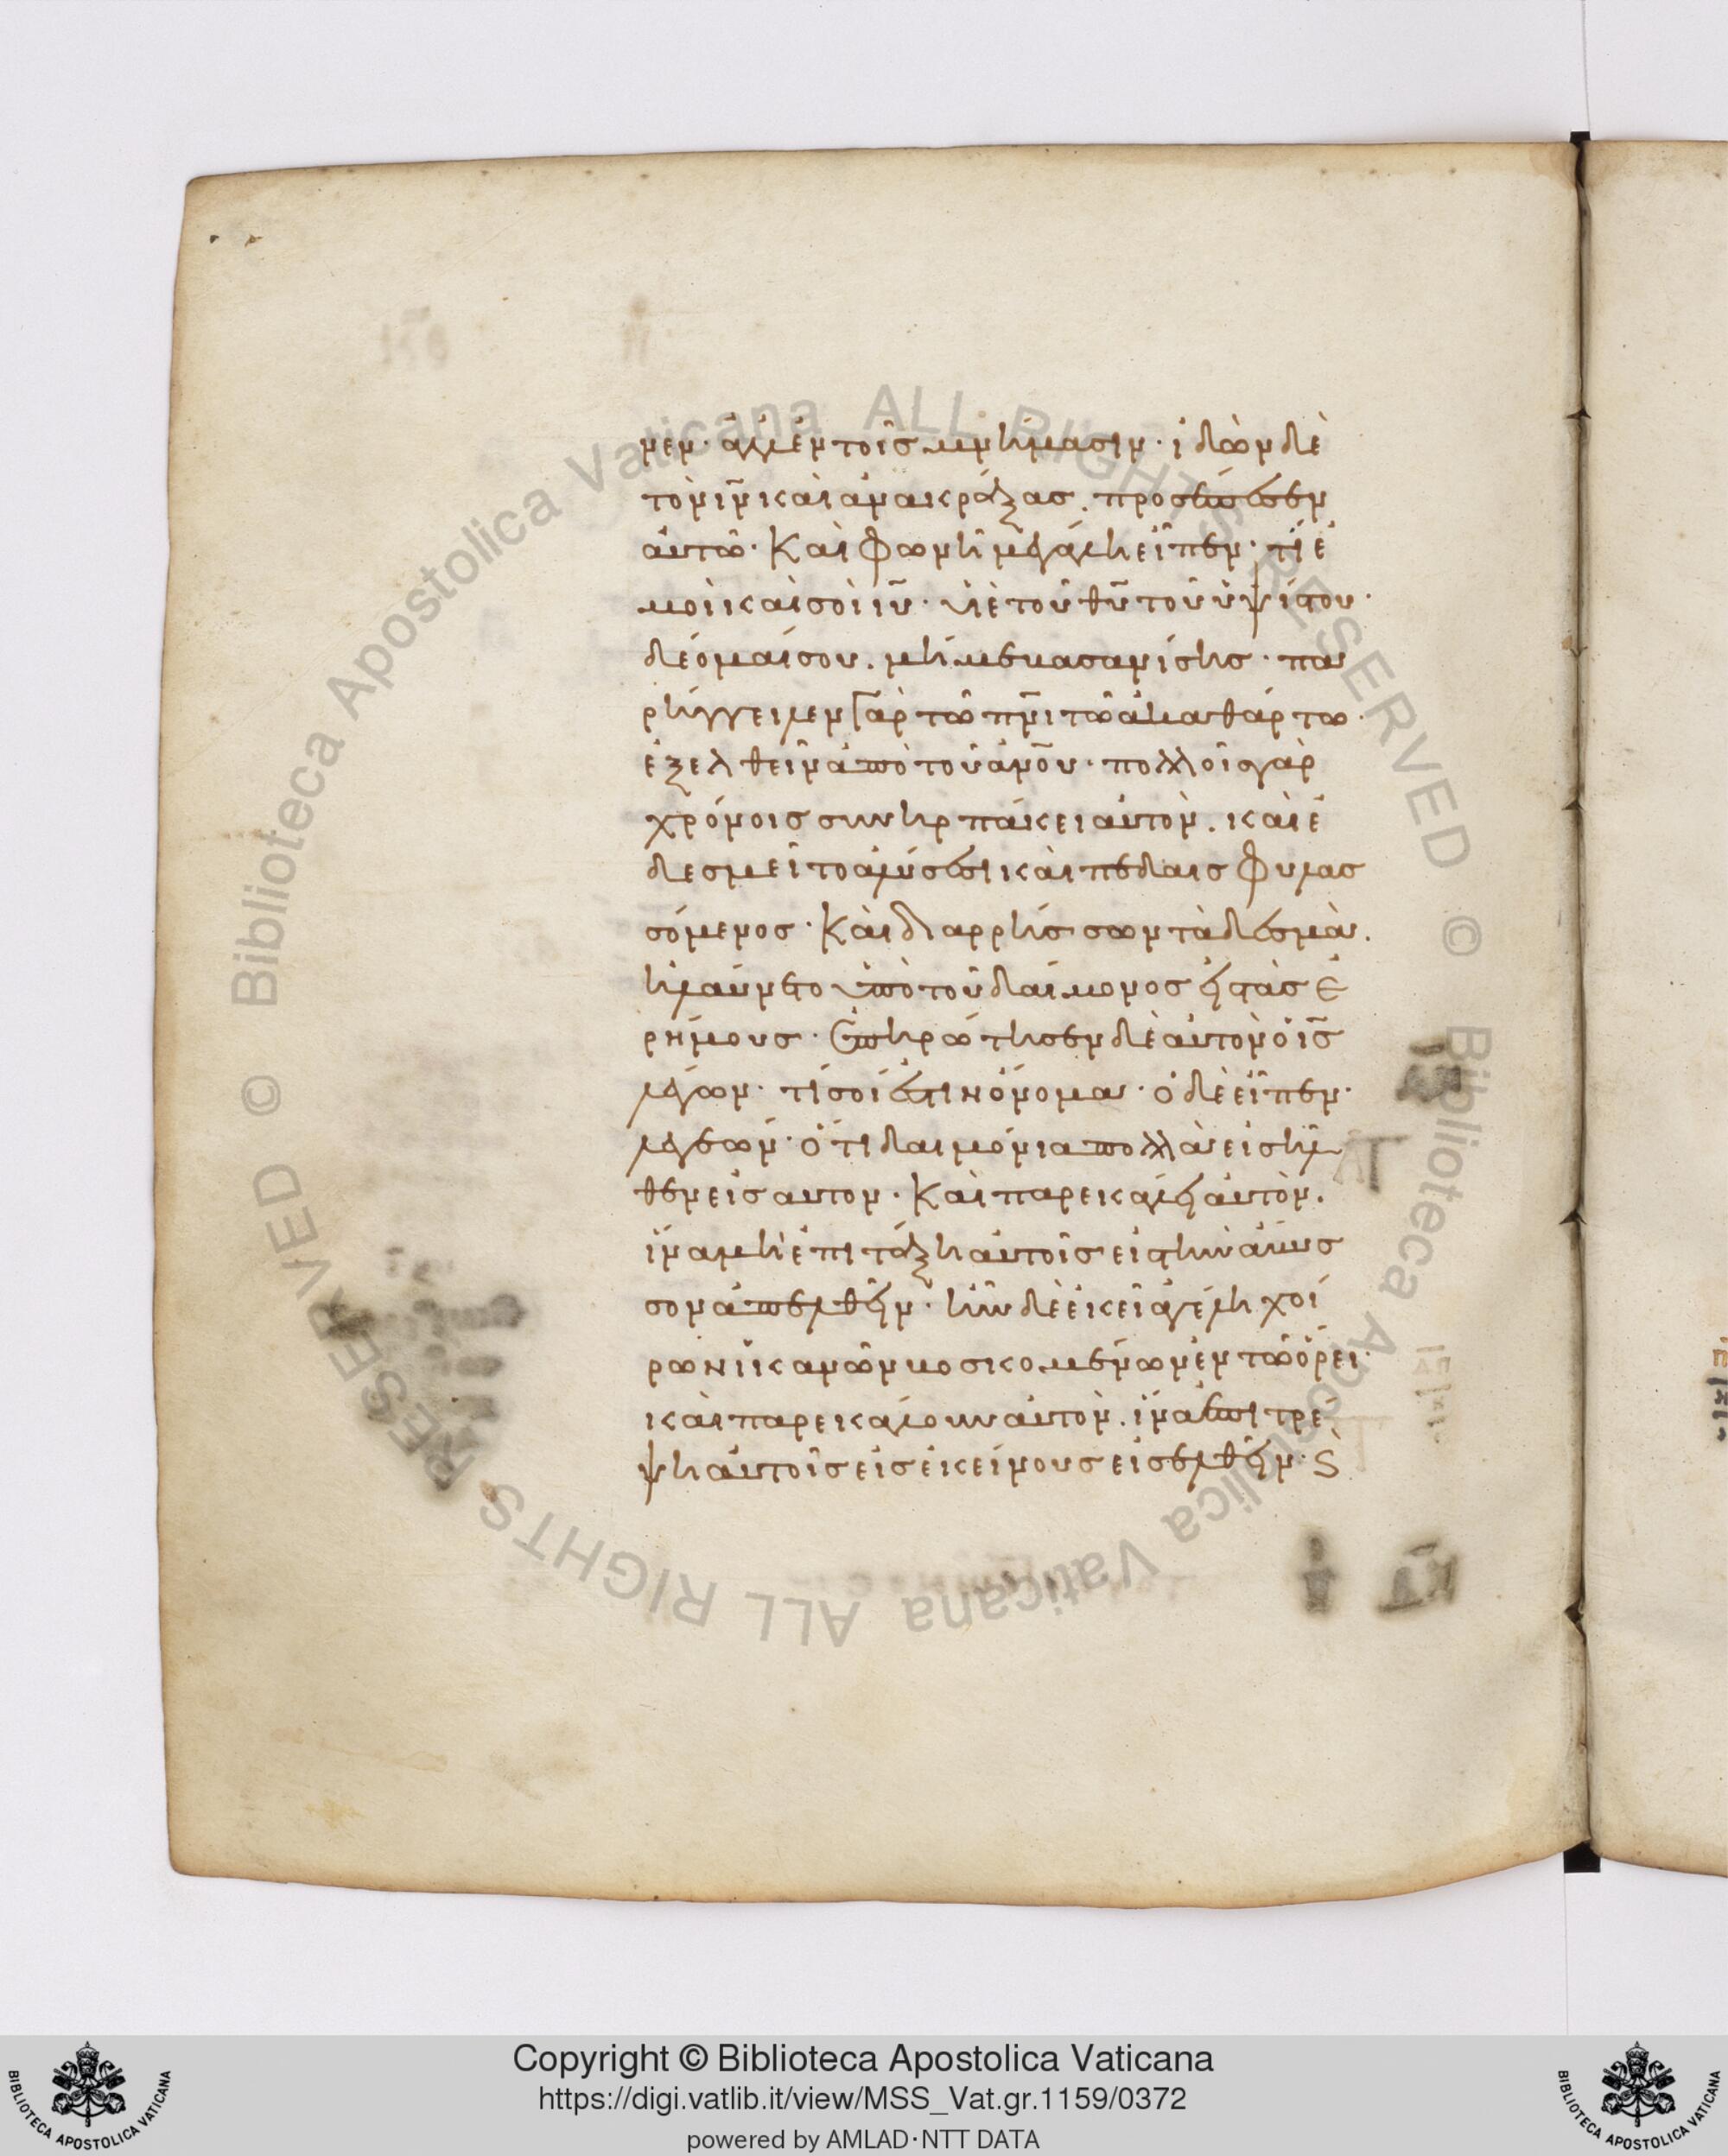 μεν· ἀλλ' ἐν τοῖς μνήμασιν· ἰδὼν δὲ
τὸν ιν καὶ ἀνακράξας. προσέπεσεν
αὐτῶ· Καὶ φωνῆ μεγάλη εἶπεν· τί ἐ
μοὶ καὶ σοὶ ιυ· υἱὲ τοῦ θυ τοῦ ὑψίστου·
δέομαί σου. μή με βασανίσης· πα
ρήγγειλεν γὰρ τῶ πνι τῶ ἀκαθάρτω·
ἐξελθεῖν ἀπὸ τοῦ ανου· πολλοῖς γὰρ
χρόνοις συνηρπάκει αὐτὸν. καὶ ἐ
δεσμεῖτο ἁλύσεσι καὶ πέδαις φυλασ
σόμενος· Καὶ διαρρήσσων τὰ δεσμὰ.
ἠλαύνετο ὑπὸ τοῦ δαίμονος εἰς τὰς ἐ
ρήμους· ἐπηρώτησεν δὲ αὐτὸν ὁ ις
λέγων· τί σοί ἐστιν ὄνομα· ὁ δὲ εἶπεν·
λεγεών· ὅτι δαιμόνια πολλὰ εἰσῆλ
θεν εἰς αὐτον· Καὶ παρεκάλει αὐτὸν.
ἵνα μὴ ἐπιτάξη αὐτοῖς εἰς τὴν ἄβυσ
σον ἀπελθεῖν· ἦν δὲ ἐκεῖ ἀγέλη χοί
ρων ἱκανῶν βοσκομένων ἐν τῶ ὄρει·
καὶ παρεκάλουν αὐτὸν. ἵνα ἐπιτρέ
ψη αὐτοῖς εἰς ἐκείνους εἰσελθεῖν· Ϛ
Copyright © Biblioteca Apostolica Vaticana
https://digi.vatlib.it/view/MSS_Vat.gr.1159/0372
powered by AMLAD·NTT DATA